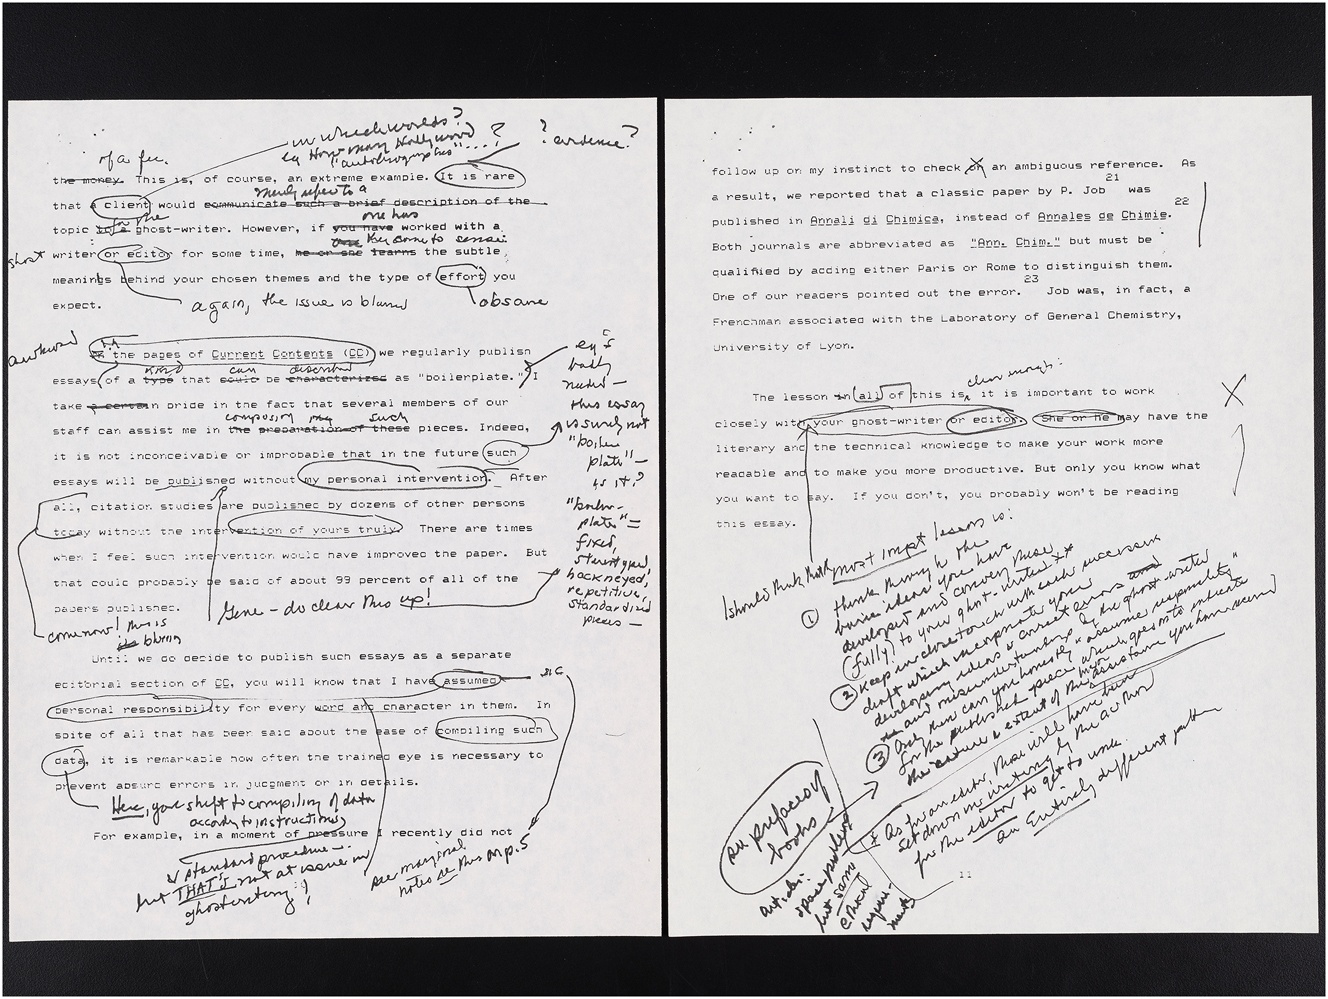 in which worlds?
eg How many Hollywood
"autobiographies"....?
? evidence?
of a fee.
the money. This is, of course, an extreme example. It is rare
merely refer to a
that a client would communicate such a brief description of the
in the
one has
topic to a ghost-writer. However, if you have worked with a
they come to sense
ghost
writer or editor for some time, he or she learns the subtle
meanings behind your chosen themes and the type of effort you
expect.
again, the issue is blurred
obscure
awkward
In the pages of Current Contents (CC) we regularly publish
kind can described
essays of a type that could be characterized as "boilerplate." I
take a certain pride in the fact that several members of our
composing my such
staff can assist me in the preparation of these pieces. Indeed,
it is not inconceivable or improbable that in the future such
essays will be published without my personal intervention. After
all, citation studies are published by dozens of other persons
today without the intervention of yours truly. There are times
when I feel such intervention would have improved the paper. But
that could probably be said of about 99 percent of all of the
papers published.
eg's
badly
needed—
this essay
is surely not
"boiler
plate"—
is it?
"boiler-
plate"=
fixed,
stereotyped,
hackneyed,
repetitive,
standardized
pieces—
Gene - do clear this up!
come now! this is
blurry
Until we do decide to publish such essays as a separate
editorial section of CC, you will know that I have assumed
sic
personal responsibility for every word and character in them. In
spite of all that has been said about the ease of compiling such
data, it is remarkable how often the trained eye is necessary to
prevent absurd errors in judgment or in details.
Here, you shift to compiling of data
according to instructions
For example, in a moment of pressure I recently did not
standard procedure—
but THAT'S not at issue in
ghostwriting!
see marginal
notes re this on p.5
follow up on my instinct to check on an ambiguous reference. As
a result, we reported that a classic paper by P. Job21 was
published in Annali di Chimica, instead of Annales de Chimie.22
Both journals are abbreviated as "Ann. Chim." but must be
qualified by adding either Paris or Rome to distinguish them.
One of our readers pointed out the error.23 Job was, in fact, a
Frenchman associated with the Laboratory of General Chemistry,
University of Lyon.
clear enough:
The lesson in all of this is, it is important to work
closely with your ghost-writer or editor. She or he may have the
literary and the technical knowledge to make your work more
readable and to make you more productive. But only you know what
you want to say. If you don't, you probably won't be reading
this essay.
X
I should think that the most impt lesson is:
① think through the
basic ideas you have
developed and convey these
(fully) to your ghost-writer **
② Keep in close touch with each successive
draft which incorporates your
developing ideas & correct errors
and misunderstandings by the ghost-writer
③ Only then can you honestly "assume responsibility"
for the published piece which goes on to indicate
the nature & extent of the assistance you have received
see prefaces of
books
* As for an editor, these will have been
set down in writing by the author
for the editor to get to work.
an Entirely different problem
articles:
space problem
but same
ethical
require-
ments
11